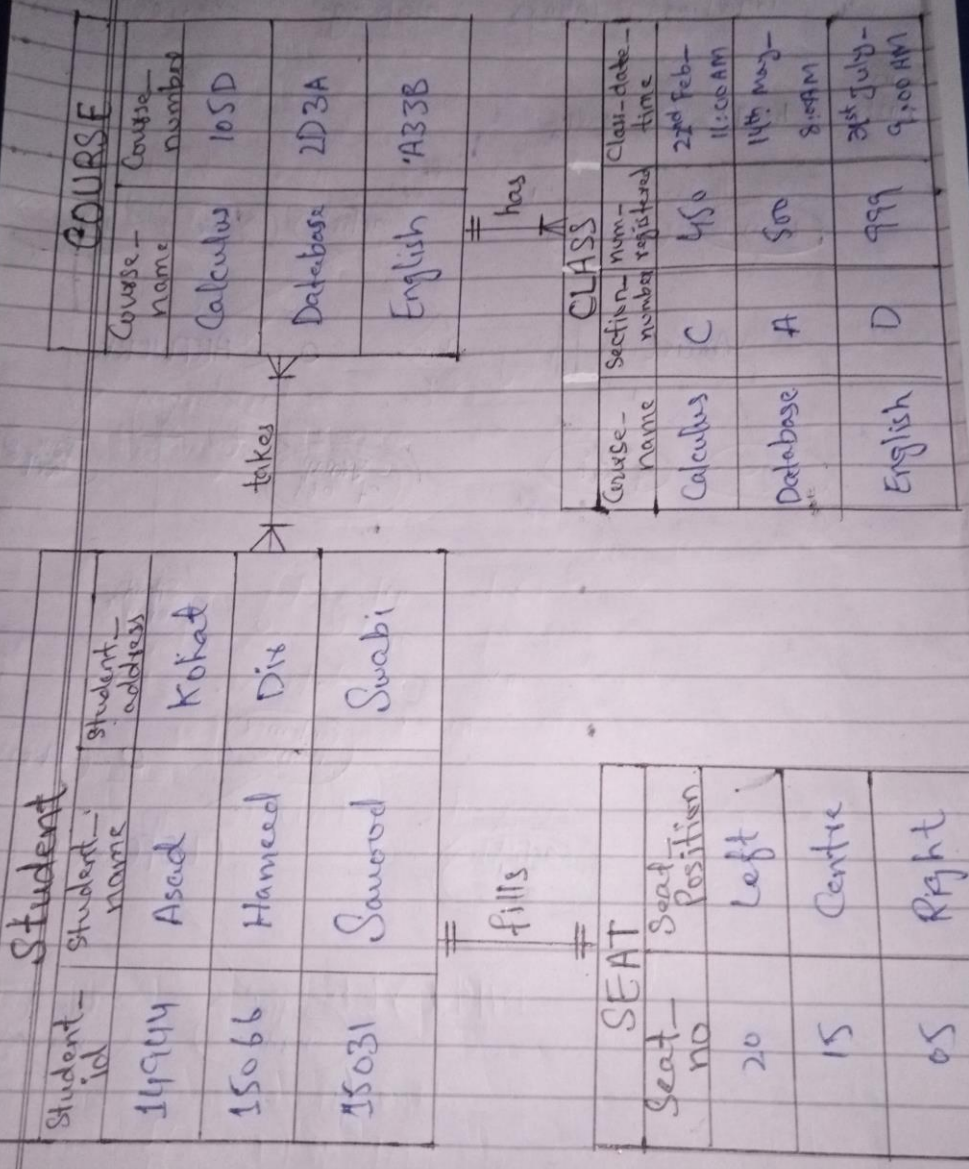 Student
Student_id Student_name Student_address
14944 Asad Kohat
15066 Hameed Dir
15031 Sawood Swabi
takes
COURSE
Course_name Course_number
Calculus 105D
Database 2D3A
English A33B
fills
has
SEAT
Seat_no Seat Position
20 Left
15 Centre
05 Right
CLASS
Course_name Section_number num_registered Class_date_time
Calculus C 450 22nd Feb_ 11:00 AM
Database A 500 14th May_ 8:00AM
English D 999 31st July_ 9:00 AM